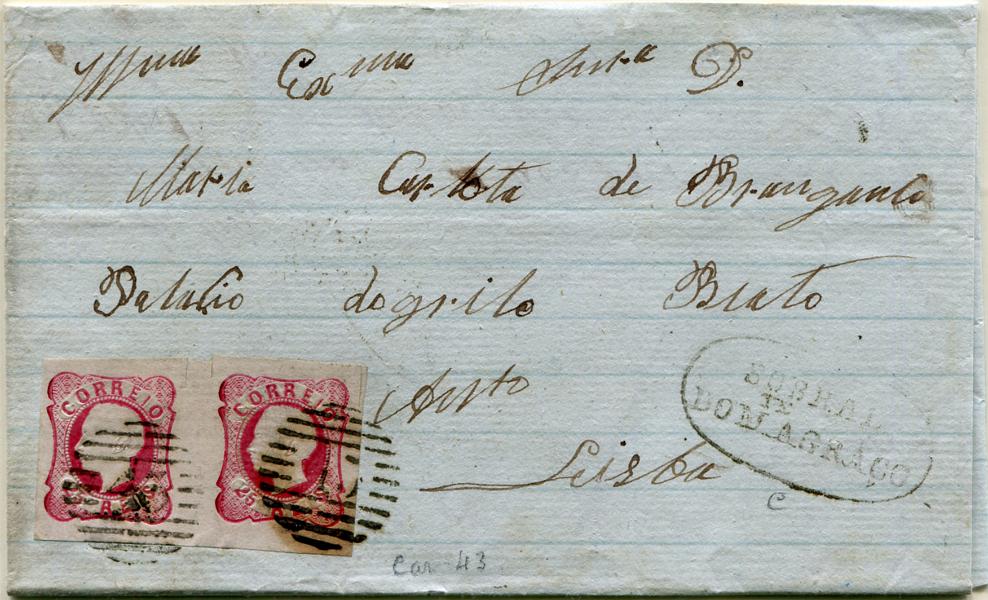 Illma Exma Snra D.
Maria Carlota de Bragança
Palacio do grilo Biato
Lisboa
SOBRAL
DE
MON.AGRAÇO
CORREIO
25 R
CORREIO
25
Car 43
c